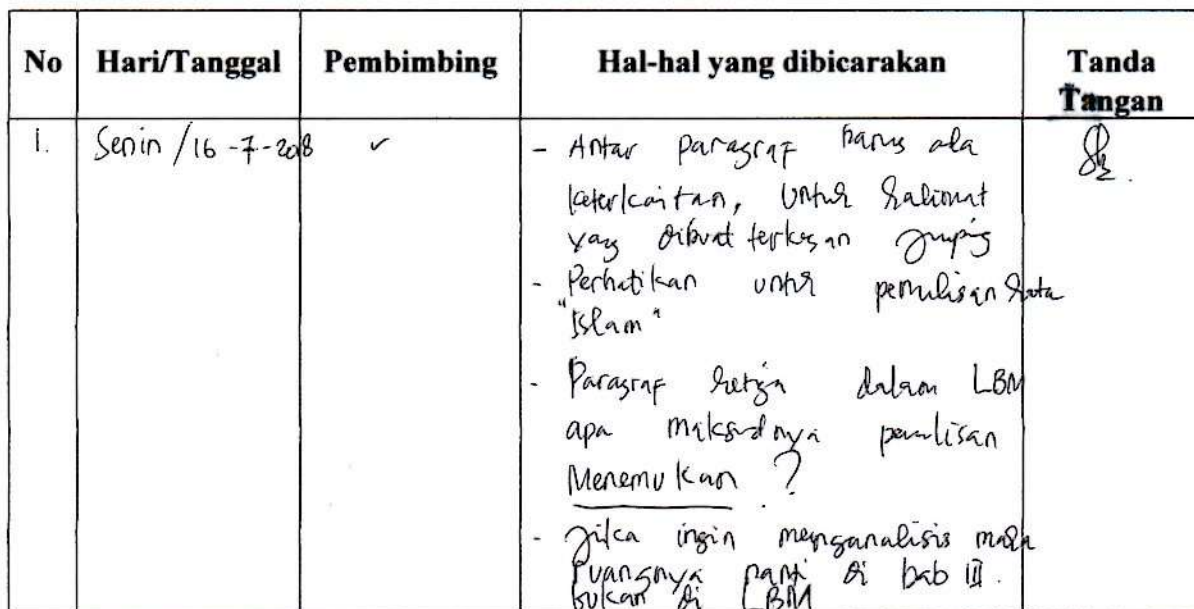 No Hari/Tanggal Pembimbing Hal-hal yang dibicarakan Tanda Tangan
1. Senin / 16-7-2018 ✓ - Antar paragraf harus ada
keterkaitan, untuk kalimat
yang dibuat terkesan jumping
- Perhatikan untuk penulisan kata
"Islam"
- Paragraf ketiga dalam LBM
apa maksudnya penulisan
Menemukan ?
- Jika ingin menganalisis maka
ruangnya nanti di bab III.
bukan di LBM